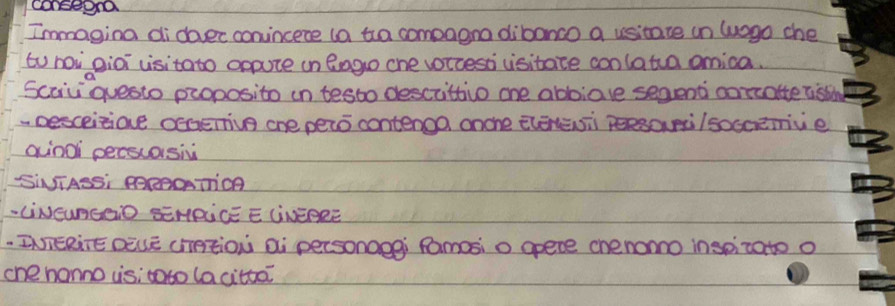 consegna
Immagina di dover convincere la tua compagna di banco a visitare un luogo che
tu hai già visitato oppure un luogo che vorresti visitare con la tua amica.
Scrivi a questo proposito un testo descrittivo che abbia le seguenti caratteristiche
- DESCRIZIONE OGGETTIVA che però contenga anche ELEMENTI PERSONALI/SOGGETTIVI e
quindi persuasivi
- SINTASSI PARATATTICA
- LINGUAGGIO SEMPLICE E LINEARE
- INSERITE DELLE CITAZIONI DI personaggi famosi o opere che hanno ispirato o
che hanno visitato la città